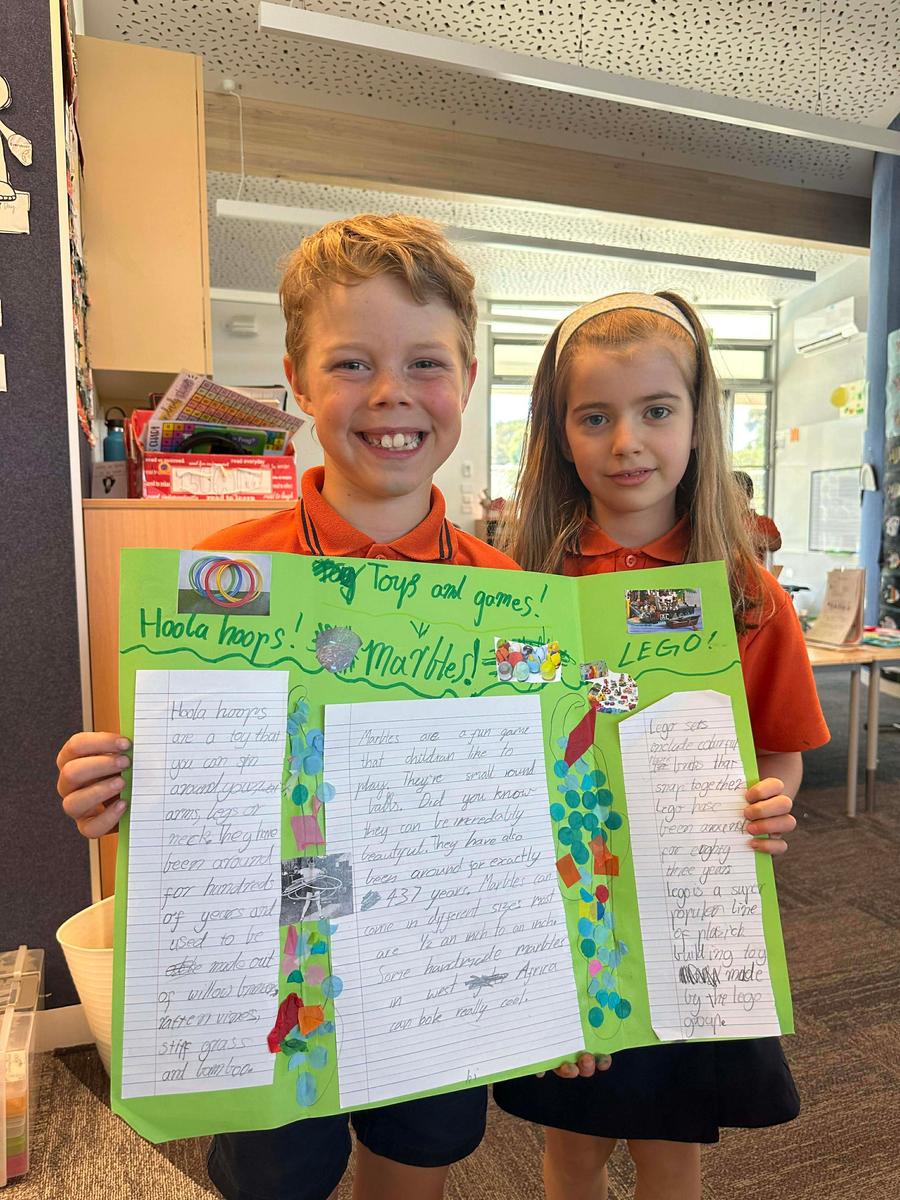 Toys and games!
Hoola hoops!
Marbles!
LEGO!
Hoola hoops
are a toy that
you can spin
around your
arms, legs or
neck. they have
been around
for hundreds
of years and
used to be
made out
of willow
rattern vines,
stiff grass
and bamboo.
Marbles are a fun game
that children like to
play. They're small round
balls. Did you know
they can be incredablly
beautiful. They have also
been around for exactly
437 years. Marbles can
come in different sizes most
are ½ an inch to an inch.
Some handmade marbles
in west Africa
can look really cool.
hi
Lego sets
include colourful
bricks that
snap together
Lego have
been around
for eighty
three years
Lego is a super
popular line
of plastick
building toy
made
by the lego
group.
read everyday